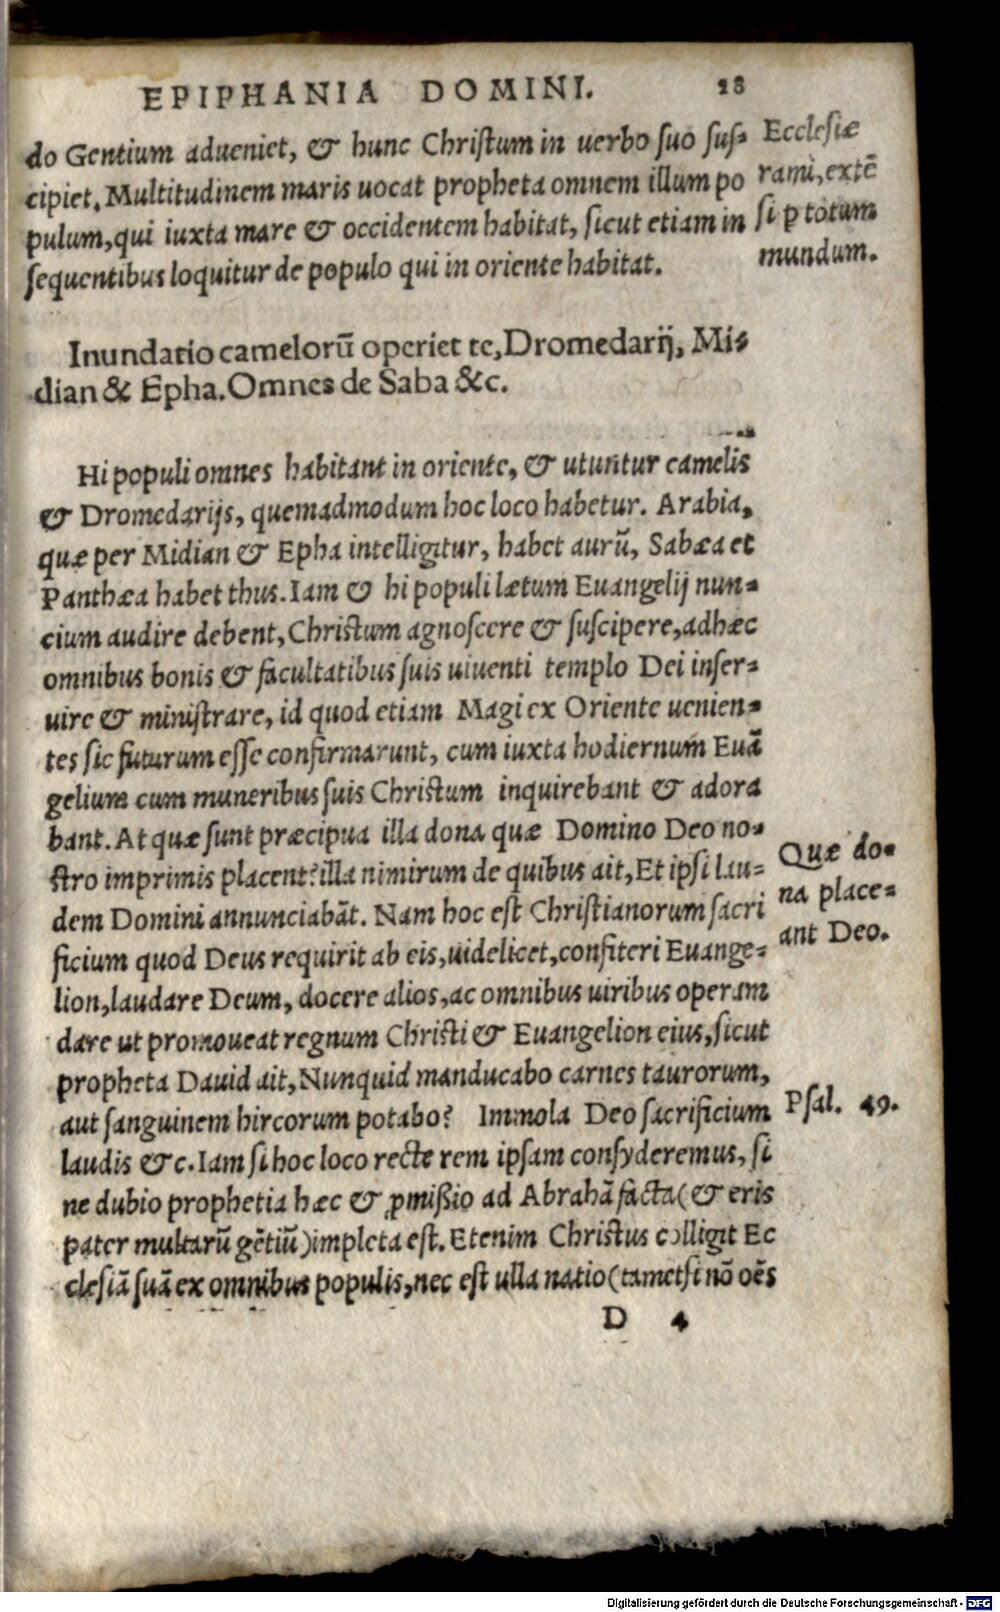 EPIPHANIA DOMINI. 28
do Gentium adueniet, & hunc Christum in uerbo suo sus-
cipiet. Multitudinem maris uocat propheta omnem illum po
pulum, qui iuxta mare & occidentem habitat, sicut etiam in
sequentibus loquitur de populo qui in oriente habitat.
Ecclesiæ
ramũ, extẽ
si p totum
mundum.
Inundatio camelorũ operiet te, Dromedarij, Mi-
dian & Epha. Omnes de Saba &c.
Hi populi omnes habitant in oriente, & utuntur camelis
& Dromedarijs, quemadmodum hoc loco habetur. Arabia,
quæ per Midian & Epha intelligitur, habet aurũ, Sabæa et
Panthæa habet thus. Iam & hi populi lætum Euangelij nun-
cium audire debent, Christum agnoscere & suscipere, adhæc
omnibus bonis & facultatibus suis uiuenti templo Dei inser-
uire & ministrare, id quod etiam Magi ex Oriente uenien-
tes sic futurum esse confirmarunt, cum iuxta hodiernum Euã
gelium cum muneribus suis Christum inquirebant & adora
bant. At quæ sunt præcipua illa dona quæ Domino Deo no-
stro imprimis placent? illa nimirum de quibus ait, Et ipsi lau-
dem Domini annunciabãt. Nam hoc est Christianorum sacri
ficium quod Deus requirit ab eis, uidelicet, confiteri Euange-
lion, laudare Deum, docere alios, ac omnibus uiribus operam
dare ut promoueat regnum Christi & Euangelion eius, sicut
propheta Dauid ait, Nunquid manducabo carnes taurorum,
aut sanguinem hircorum potabo? Immola Deo sacrificium
laudis &c. Iam si hoc loco recte rem ipsam consyderemus, si
ne dubio prophetia hæc & ꝓmißio ad Abrahã facta (& eris
pater multarũ gẽtiũ) impleta est. Etenim Christus colligit Ec
clesiã suã ex omnibus populis, nec est ulla natio (tametsi nõ oẽs
Quæ do-
na place-
ant Deo.
Psal. 49.
D 4
Digitalisierung gefördert durch die Deutsche Forschungsgemeinschaft - DFG